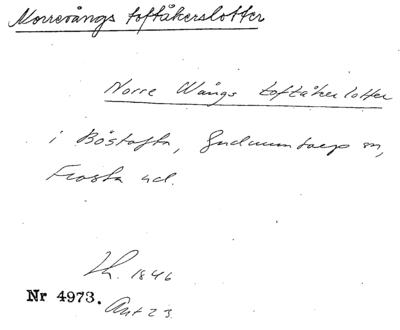 Norrevångs toftåkerslotter
Norre Wångs toftåker lotter
i Böstofta, Gudmuntorp sn,
Frosta hd.
Lh. 1846
Nr 4973.
Akt 23